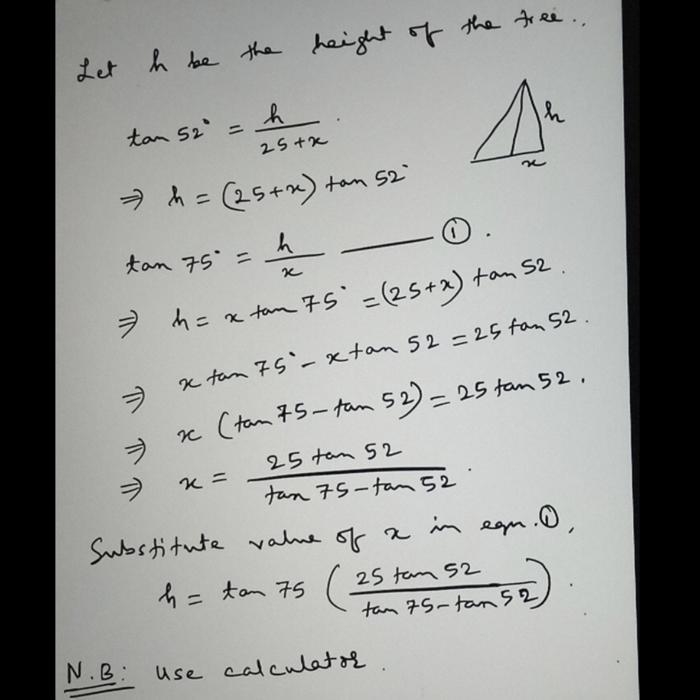 Let h be the height of the tree..
tan 52° = h / (25+x)
⇒ h = (25+x) tan 52°
h
x
tan 75° = h / x ——— ①.
⇒ h = x tan 75° = (25+x) tan 52.
⇒ x tan 75° - x tan 52 = 25 tan 52.
⇒ x (tan 75 - tan 52) = 25 tan 52.
⇒ x = 25 tan 52 / (tan 75 - tan 52).
Substitute value of x in eqn. ①,
h = tan 75 (25 tan 52 / (tan 75 - tan 52)).
N.B: Use calculator.